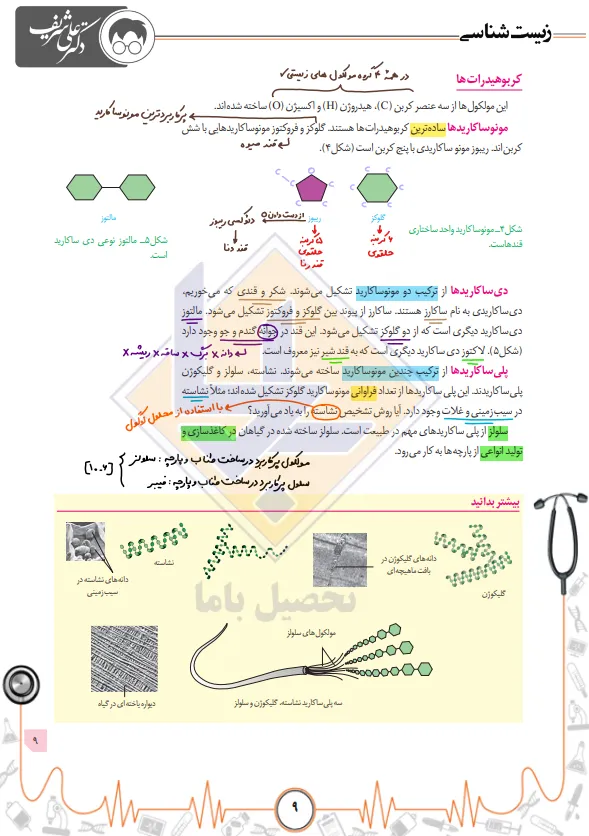 زیست‌شناسی
دکتر علی شریف
در همهٔ ۴ گروه مولکول های زیستی ✓
کربوهیدرات‌ها
این مولکول‌ها از سه عنصر کربن (C)، هیدروژن (H) و اکسیژن (O) ساخته شده‌اند.
پرکاربردترین مونوساکارید
مونوساکاریدها ساده‌ترین کربوهیدرات‌ها هستند. گلوکز و فروکتوز مونوساکاریدهایی با شش
قند میوه
کربن‌اند. ریبوز مونو ساکاریدی با پنج کربن است (شکل۴).
گلوکز
ریبوز
مالتوز
از دست دادن O
دئوکسی ریبوز
قند دنا
۶ کربنه
حلقوی
۵ کربنه
حلقوی
قند رنا
شکل۴ــ مونوساکارید واحد ساختاری
قندهاست.
شکل۵ــ مالتوز نوعی دی ساکارید
است.
دی‌ساکاریدها از ترکیب دو مونوساکارید تشکیل می‌شوند. شکر و قندی که می‌خوریم،
دی‌ساکاریدی به نام ساکارز هستند. ساکارز از پیوند بین گلوکز و فروکتوز تشکیل می‌شود. مالتوز
دی‌ساکارید دیگری است که از دو گلوکز تشکیل می‌شود. این قند در جوانهٔ گندم و جو وجود دارد
(شکل۵). لاکتوز دی ساکارید دیگری است که به قند شیر نیز معروف است.
دانه X برگ X ساقه X ریشه X
پلی‌ساکاریدها از ترکیب چندین مونوساکارید ساخته می‌شوند. نشاسته، سلولز و گلیکوژن
پلی‌ساکاریدند. این پلی‌ساکاریدها از تعداد فراوانی مونوساکارید گلوکز تشکیل شده‌اند؛ مثلاً نشاسته
در سیب‌زمینی و غلات وجود دارد. آیا روش تشخیص نشاسته را به یاد می‌آورید؟
با استفاده از محلول لوگول
سلولز از پلی ساکاریدهای مهم در طبیعت است. سلولز ساخته شده در گیاهان در کاغذسازی و
تولید انواعی از پارچه‌ها به کار می‌رود.
مولکول پرکاربرد در ساخت طناب و پارچه : سلولز
سلول پرکاربرد در ساخت طناب و پارچه : فیبر
بیشتر بدانید
نشاسته
دانه‌های نشاسته در
سیب‌زمینی
دانه‌های گلیکوژن در
بافت ماهیچه‌ای
گلیکوژن
تحصیل باما
مولکول‌های سلولز
دیواره یاخته‌ای در گیاه
سه پلی‌ساکارید نشاسته، گلیکوژن و سلولز
۹
۹